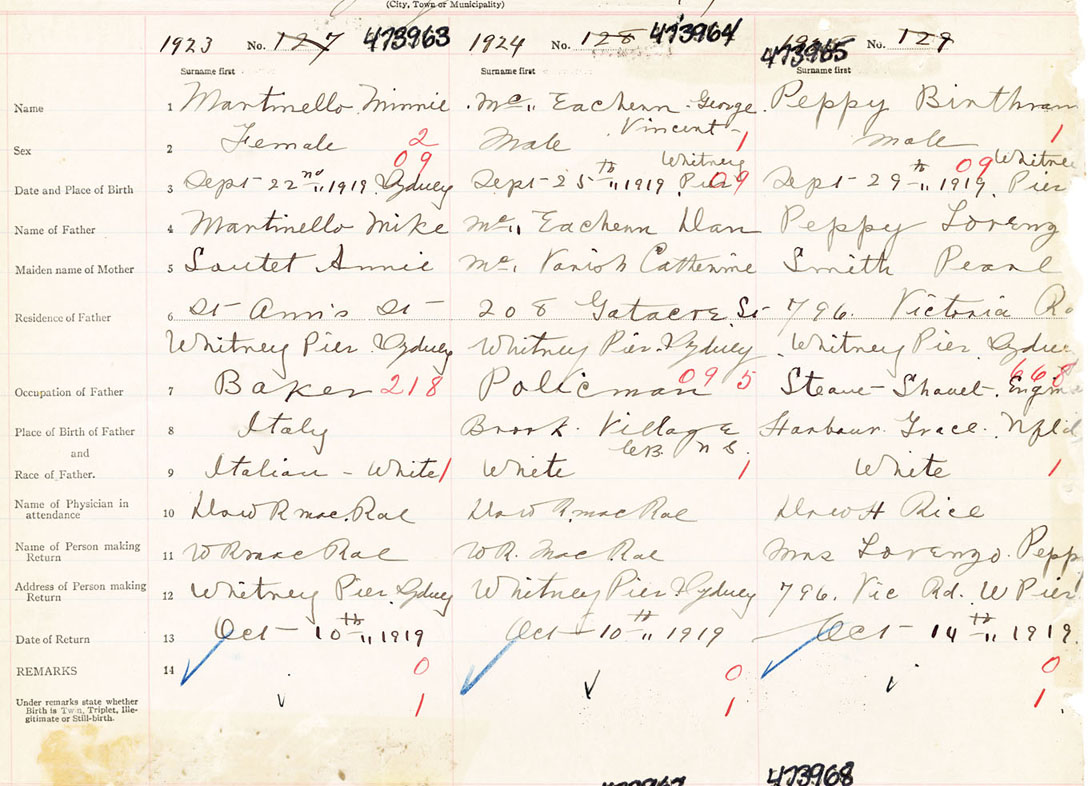 (City, Town or Municipality)
1923 No. 127 473963 1924 No. 128 473964 473965 No. 129
Surname first Surname first Surname first
Name 1 Martinello Minnie Mc Eachern George Peppy Binthram
Vincent
Sex 2 Female 2 Male 1 male 1
09 Whitney 09 Whitney
Date and Place of Birth 3 Sept 22nd 1919 Sydney Sept 25th 1919 Pier 09 Sept 29th 1919. Pier
Name of Father 4 Martinello Mike Mc Eachern Dan Peppy Lorenz
Maiden name of Mother 5 Soutet Annie Mc Vanish Catherine Smith Pearl
Residence of Father 6 St Ann's St 208 Gatacre St 796. Victoria R
Whitney Pier Sydney Whitney Pier Sydney Whitney Pier Sydne
Occupation of Father 7 Baker 218 Policman 095 Steam Shovel Engin 668
Place of Birth of Father 8 Italy Brook Village Harbour Grace. Nfld
and C.B. N.S.
Race of Father. 9 Italian - White 1 White 1 White 1
Name of Physician in
attendance 10 Daw R MacRae Daw R. MacRae Daw H Rice
Name of Person making
Return 11 W R MacRae W R. MacRae Mrs Lorenzo Pepp
Address of Person making
Return 12 Whitney Pier Sydney Whitney Pier Sydney 796. Vic Rd. W Pier
Date of Return 13 Oct 10th 1919 Oct 10th 1919 Oct 14th 1919.
REMARKS 14 0 0 0
Under remarks state whether
Birth is Twin, Triplet, Ille-
gitimate or Still-birth. 1 1 1
473967 473968